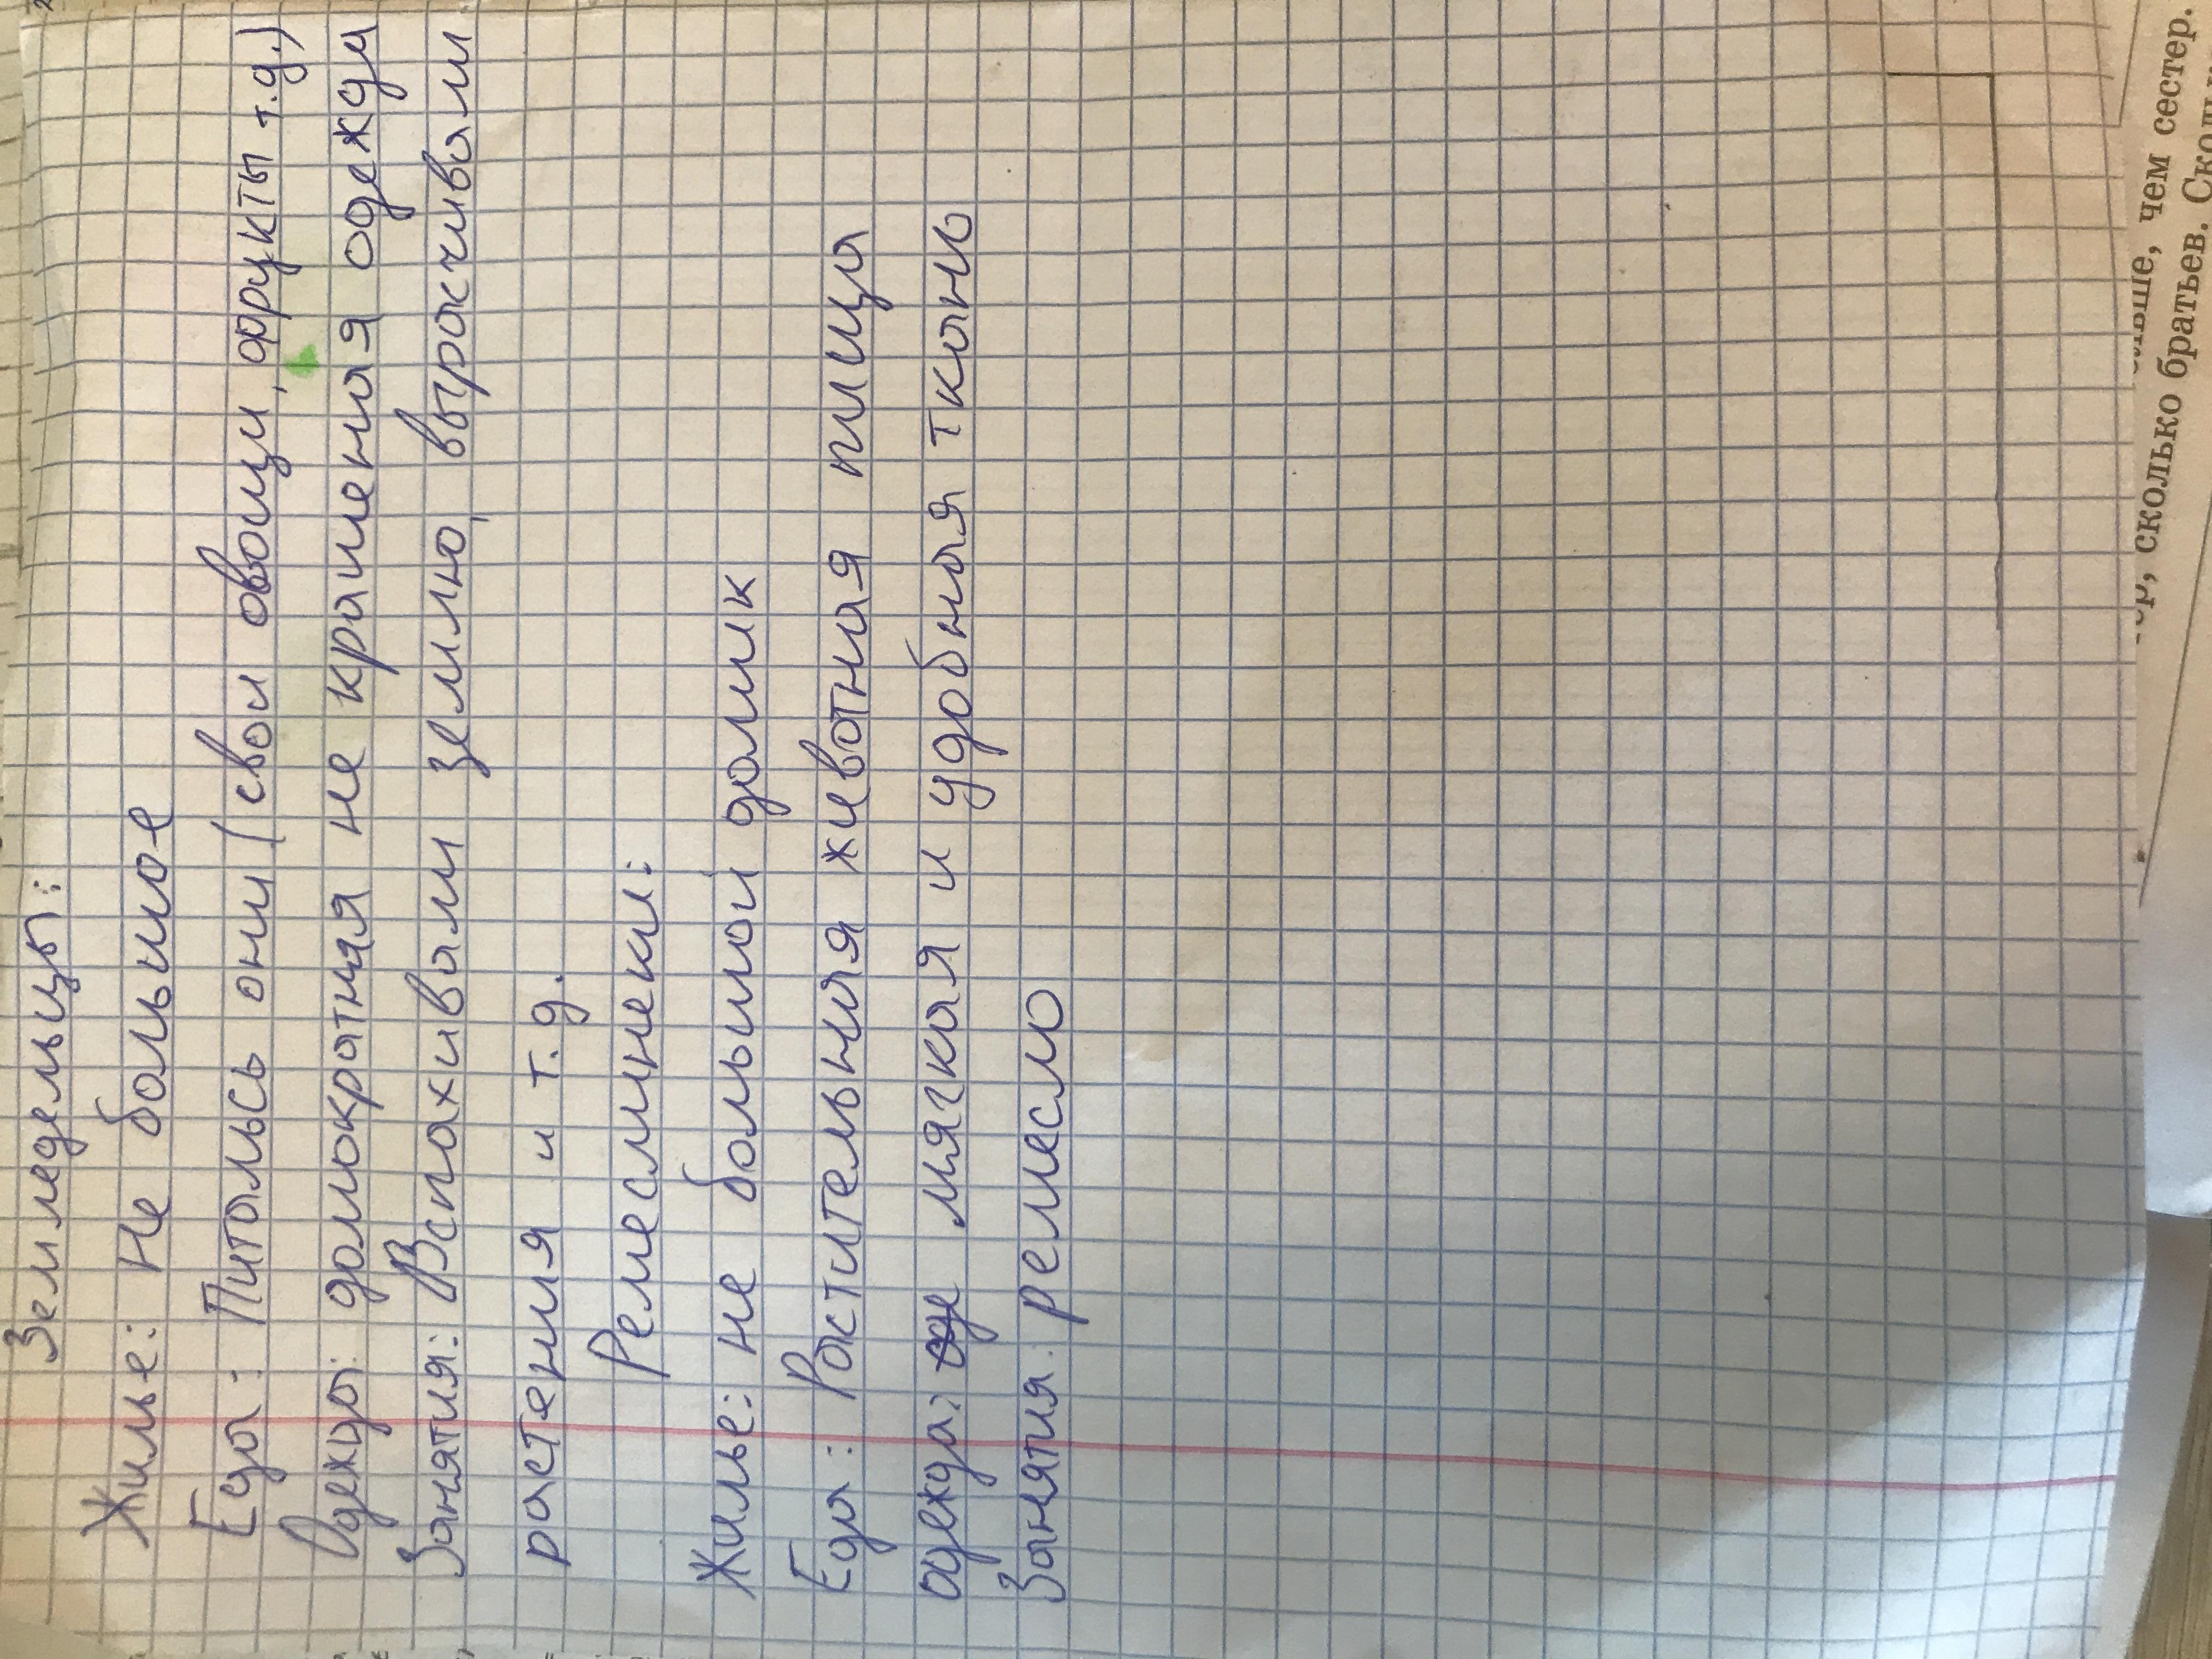 Земледельцы:
Жилье: Не большое
Еда: Питолысь они (свои овощи, фрукты т.д.)
Одежда: домократная не крашеная одежди
Занятия: Вспахивали землю, выращивали
растения и т.д.
Ремеслинеки:
Жилье: не большой домик
Еда: Растительная животная пища
одежда: мягкая и удобная ткань
Занятия: ремесло
ольше, чем сестер.
сколько братьев.